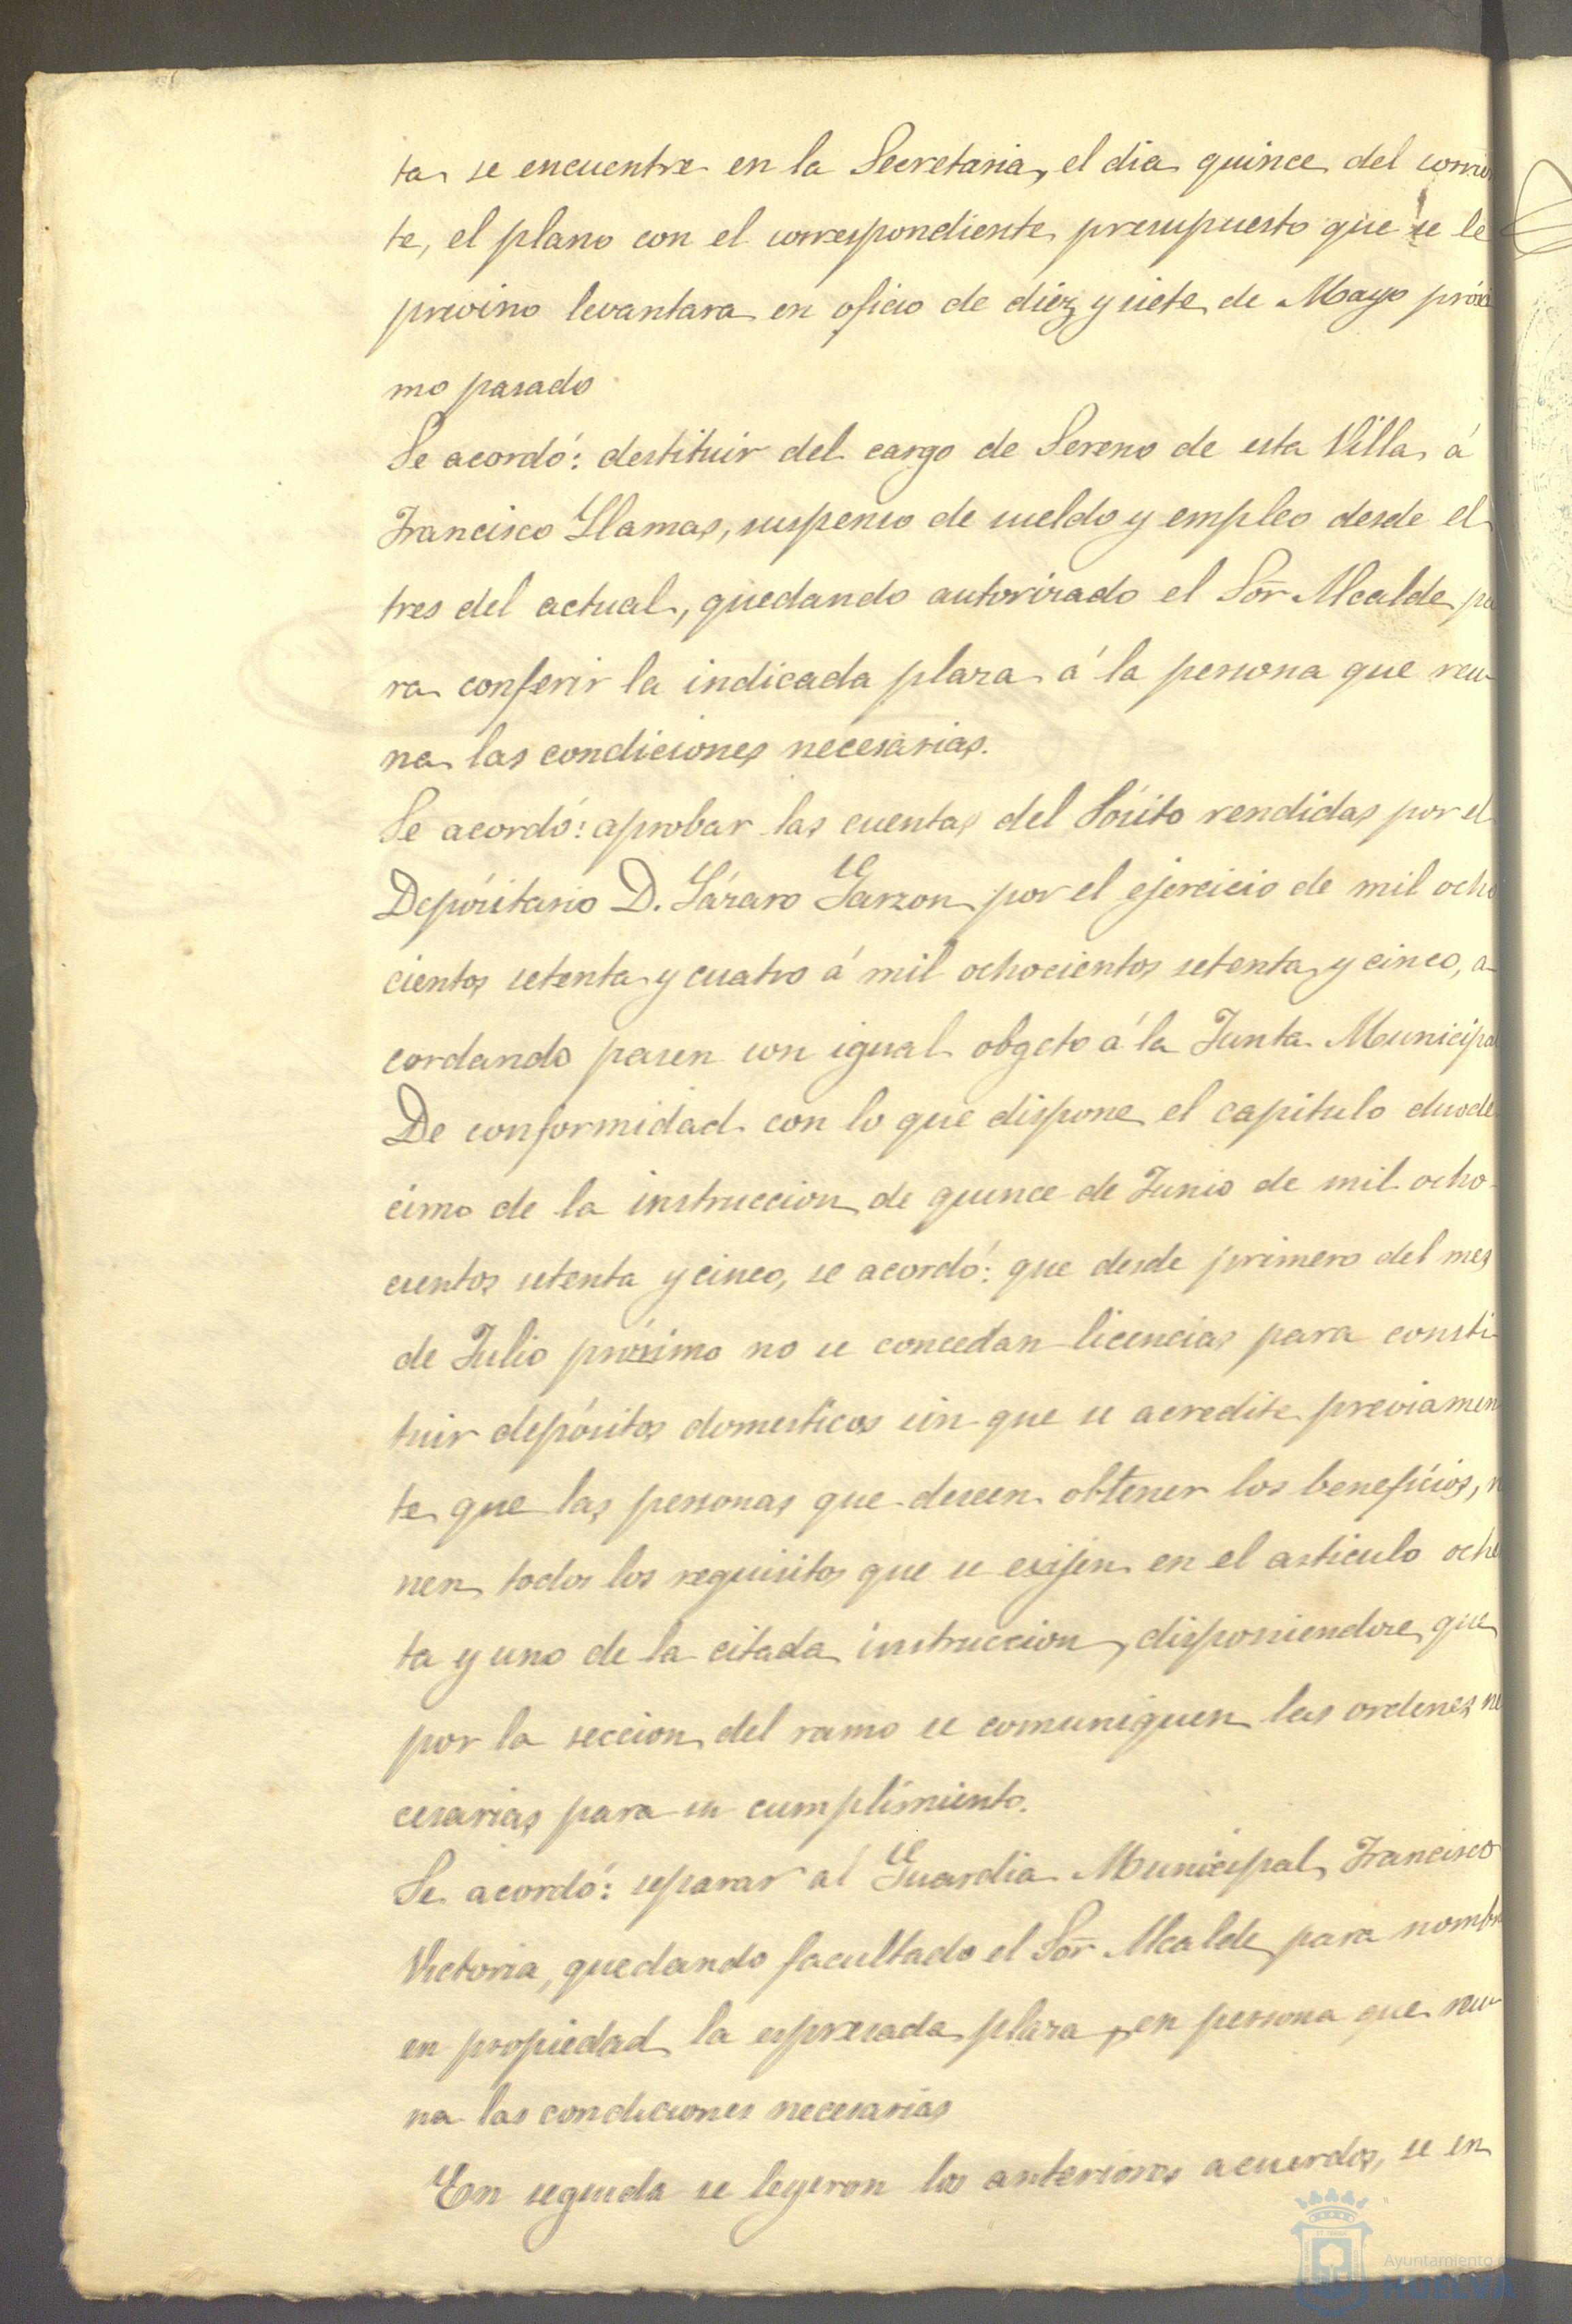 ta se encuentre en la Secretaria, el dia quince del corrien
te, el plano con el correspondiente presupuesto que se le
previno levantara en oficio de diez y siete de Mayo próxi
mo pasado
Se acordó: destituir del cargo de Sereno de esta Villa á
Francisco Llamas, suspenso de sueldo y empleo desde el
tres del actual, quedando autorizado el Sor Alcalde pa
ra conferir la indicada plaza á la persona que reu-
na las condiciones necesarias.
Se acordó: aprobar las cuentas del Pósito rendidas por el
Depósitario D. Lázaro Garzon por el ejercicio de mil ocho
cientos setenta y cuatro á mil ochocientos setenta y cinco, a-
cordando pasen con igual obgeto á la Junta Municipal
De conformidad con lo que dispone el capitulo duode
cimo de la instruccion de quince de Junio de mil ocho-
cientos setenta y cinco, se acordó: que desde primero del mes
de Julio próximo no se concedan licencias para consti-
tuir depósitos domesticos sin que se acredite previamen
te que las personas que deseen obtener los beneficios, r
nen todos los requisitos que se exijen en el articulo oche
ta y uno de la citada instruccion, disponiendose que
por la seccion del ramo se comuniquen las ordenes ne
cesarias para su cumplimiento.
Se acordó: separar al Guardia Municipal Francisco
Victoria, quedando facultado el Sor Alcalde para nombr
en propiedad la espresada plaza, en persona que reu-
na las condiciones necesarias
En seguida se leyeron los anteriores acuerdos, se en
Ayuntamiento
HUELVA